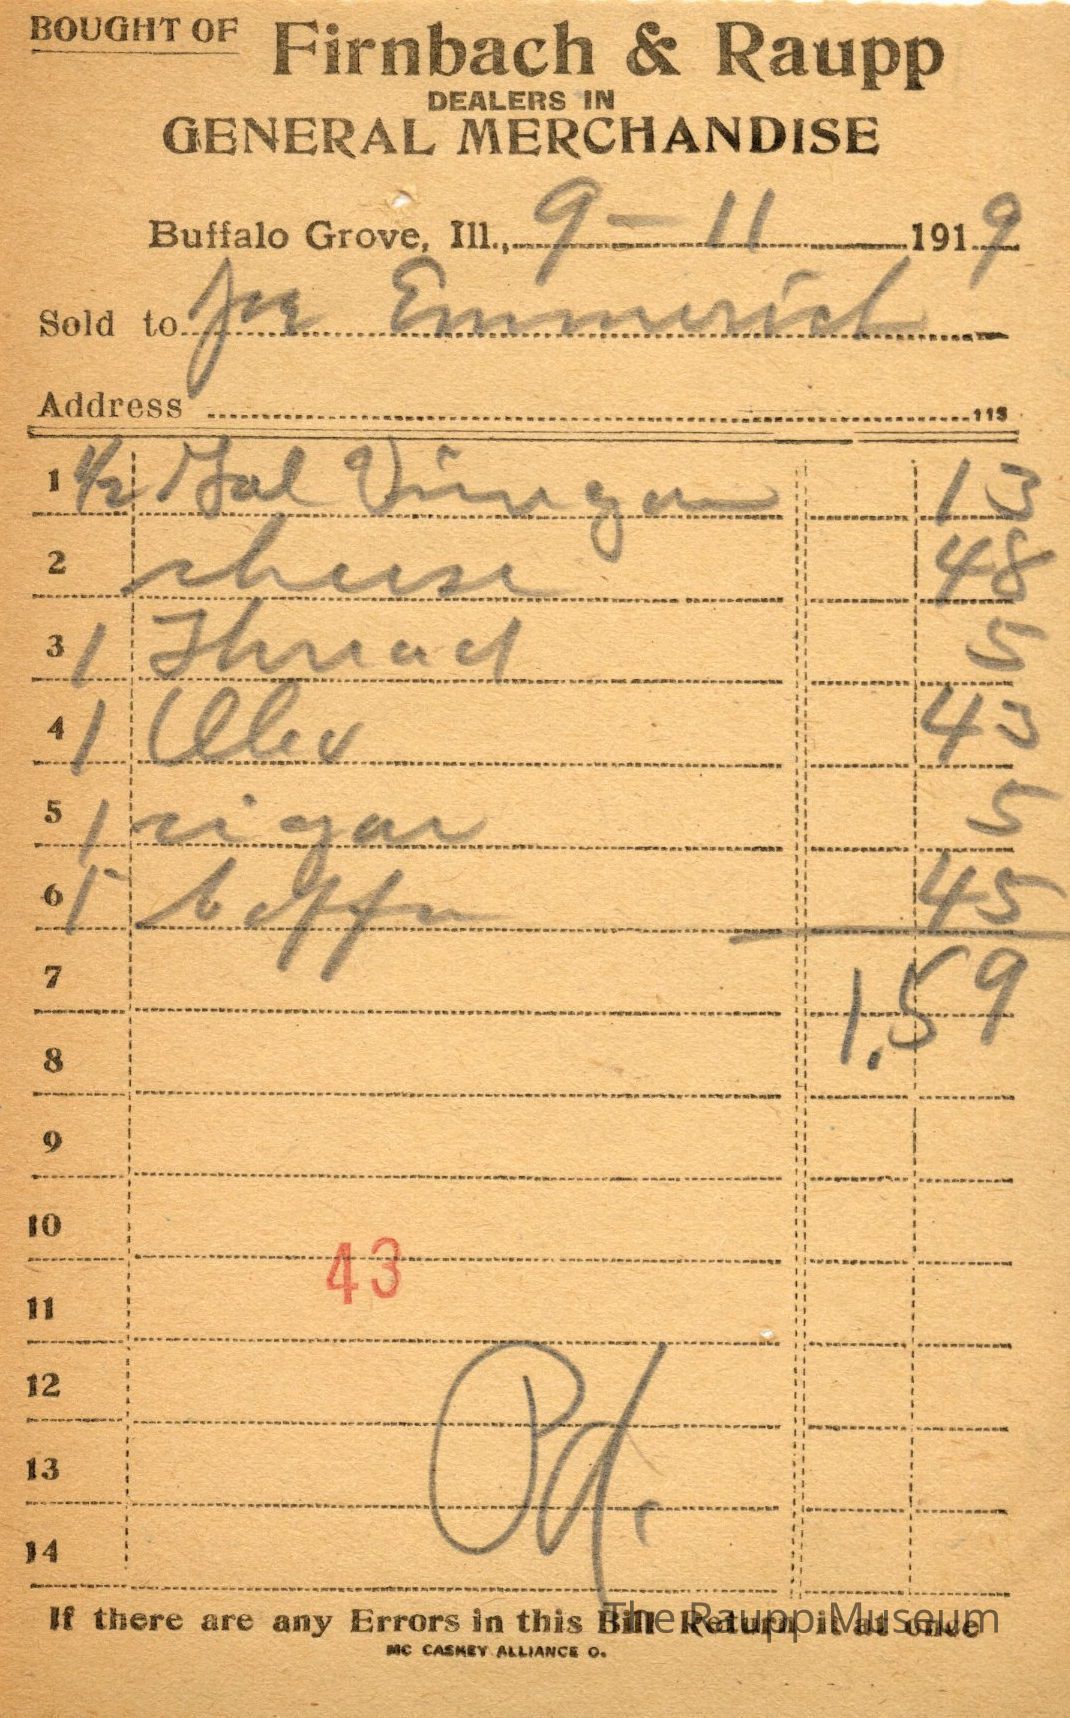 BOUGHT OF Firnbach & Raupp
DEALERS IN
GENERAL MERCHANDISE
Buffalo Grove, Ill., 9-11 1919
Sold to Joe Emmerich
Address 118
1 1/2 Gal Vinegar 13
2 cheese 48
3 1 Thread 5
4 1 Oleo 43
5 1 cigar 5
6 1 coffee 45
7 1.59
8
9
10
43
11
12
Pd.
13
14
If there are any Errors in this Bill Return it at once
The Raupp Museum
MC CASKEY ALLIANCE O.